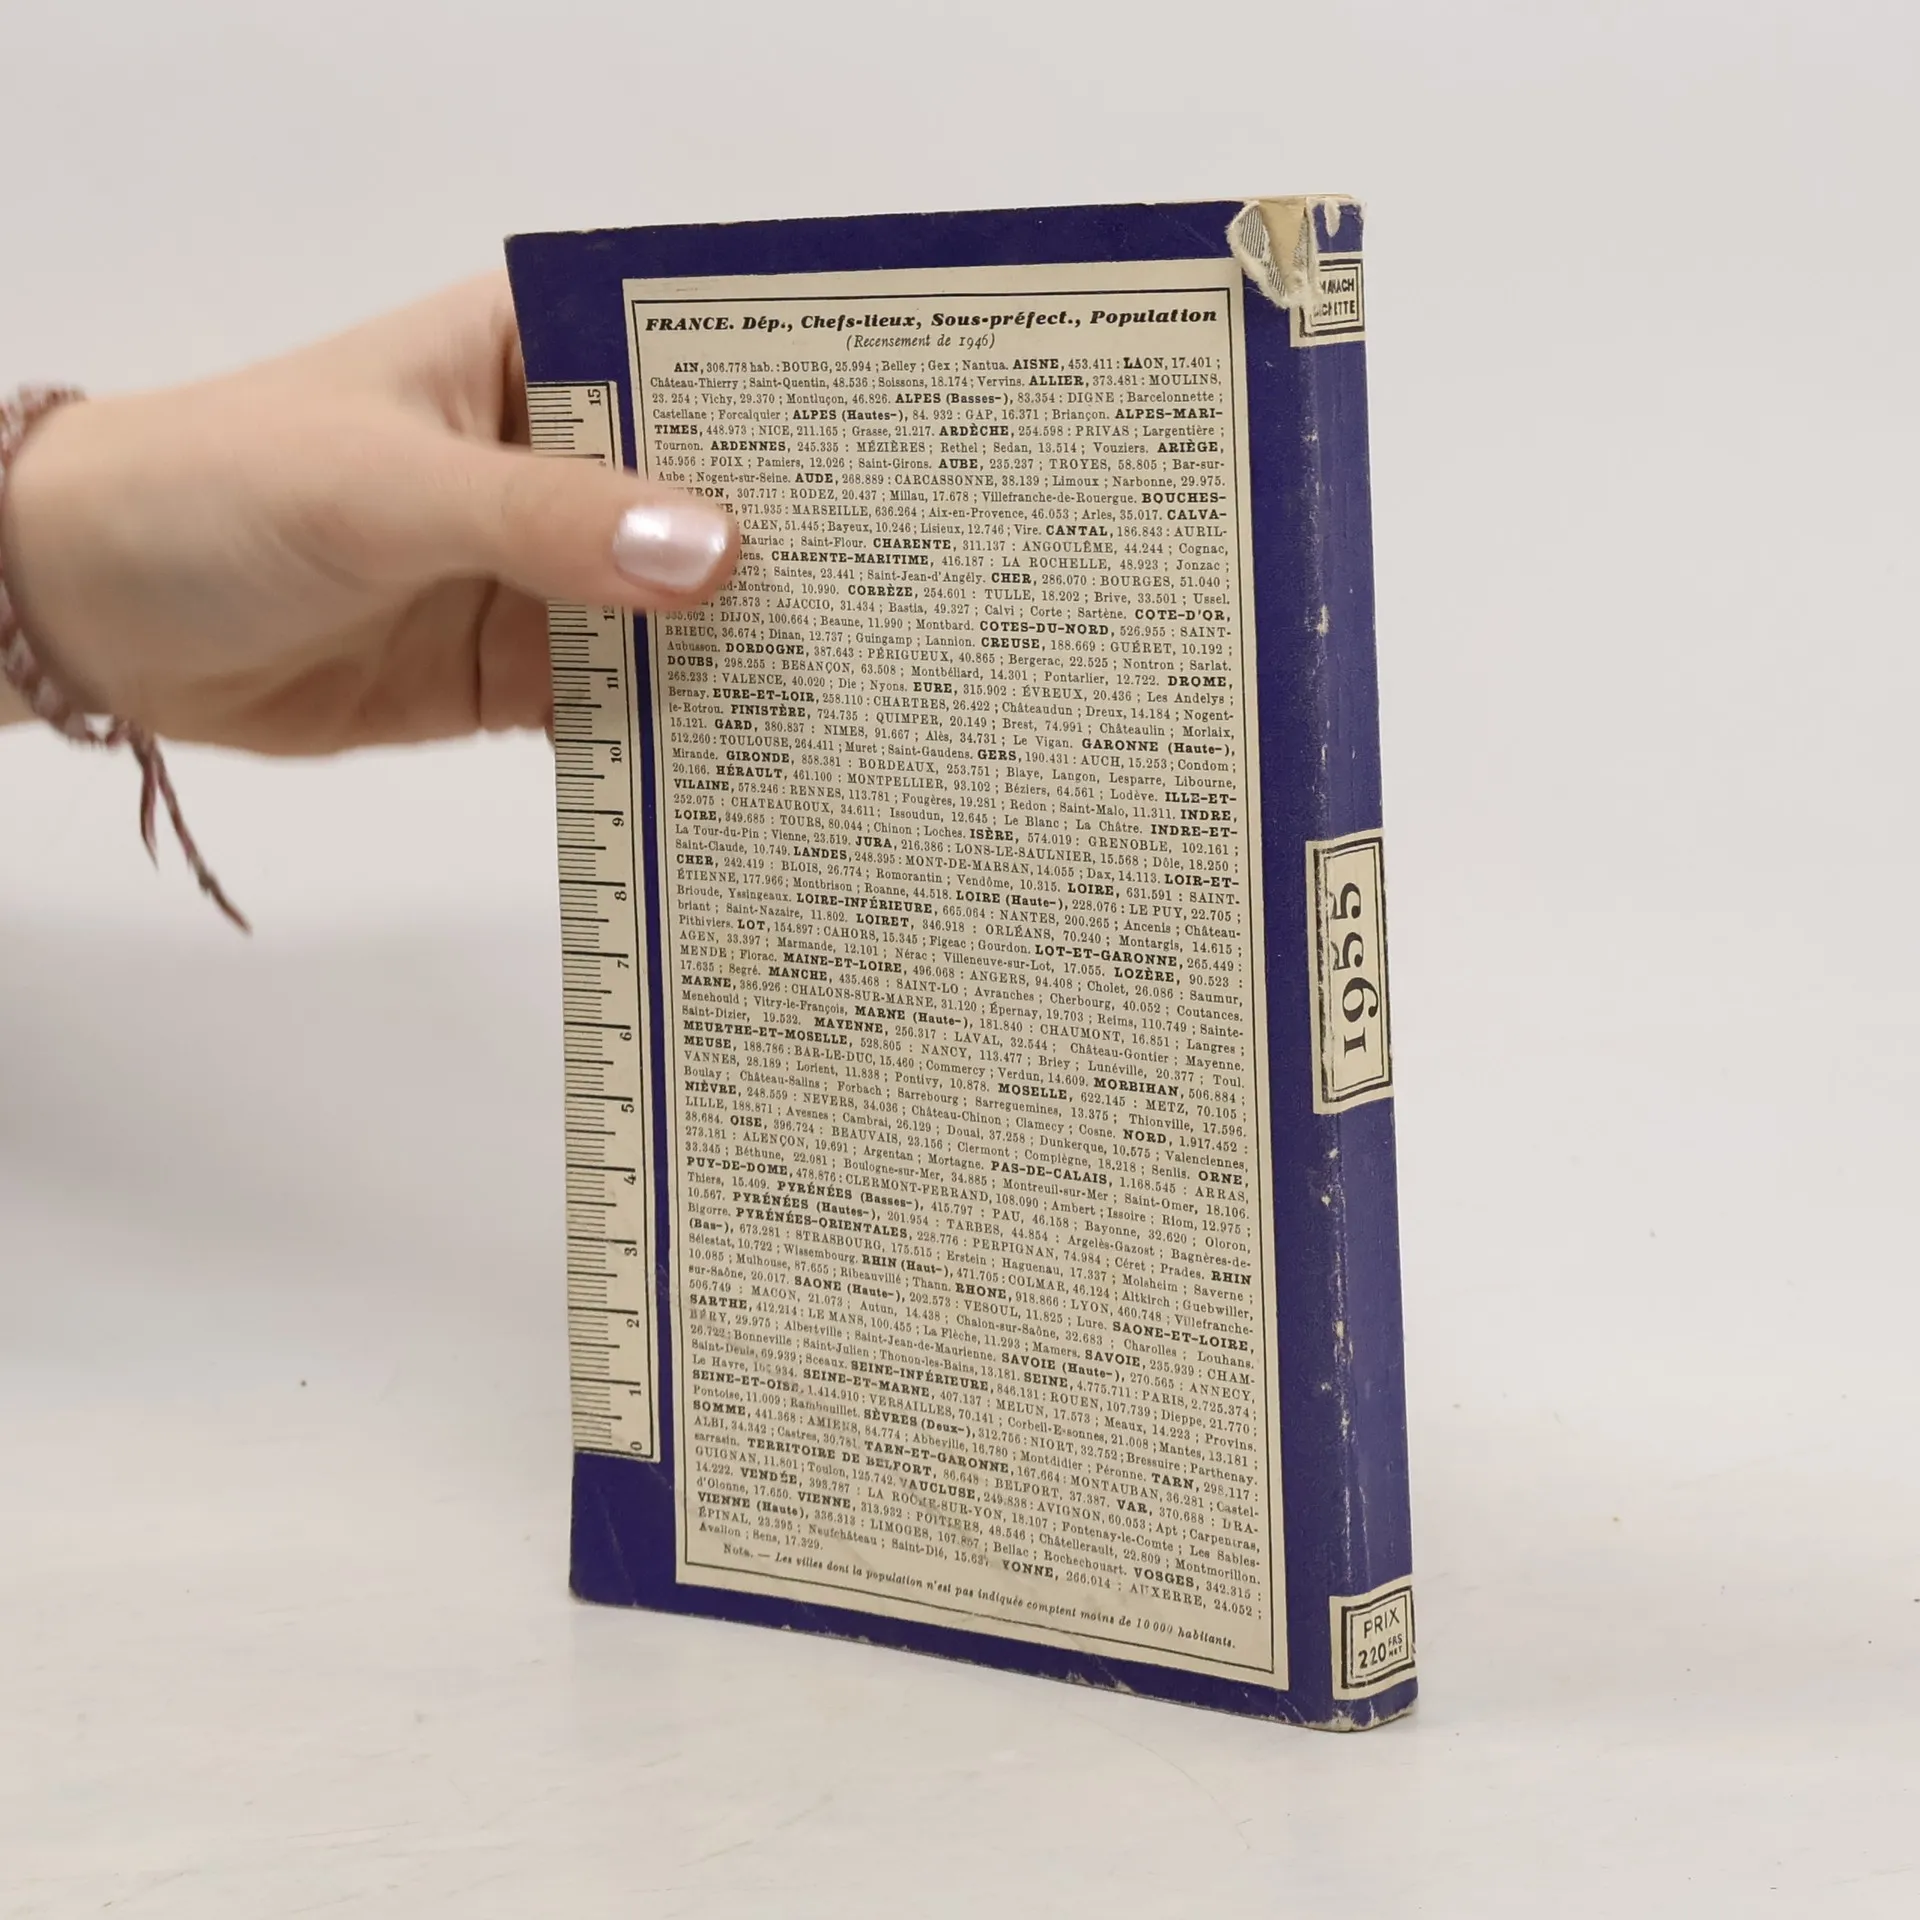 FRANCE. Dép., Chefs-lieux, Sous-préfect., Population
(Recensement de 1946)
AIN, 306.778 hab. : BOURG, 25.994 ; Belley ; Gex ; Nantua. AISNE, 453.411 : LAON, 17.401 ;
Château-Thierry ; Saint-Quentin, 48.536 ; Soissons, 18.174 ; Vervins. ALLIER, 373.481 : MOULINS,
23. 254 ; Vichy, 29.370 ; Montluçon, 46.826. ALPES (Basses-), 83.354 : DIGNE ; Barcelonnette ;
Castellane ; Forcalquier ; ALPES (Hautes-), 84. 932 : GAP, 16.371 ; Briançon. ALPES-MARI-
TIMES, 448.973 ; NICE, 211.165 ; Grasse, 21.217. ARDÈCHE, 254.598 : PRIVAS ; Largentière ;
Tournon. ARDENNES, 245.335 : MÉZIÈRES ; Rethel ; Sedan, 13.514 ; Vouziers. ARIÈGE,
145.956 : FOIX ; Pamiers, 12.026 ; Saint-Girons. AUBE, 235.237 ; TROYES, 58.805 ; Bar-sur-
Aube ; Nogent-sur-Seine. AUDE, 268.889 : CARCASSONNE, 38.139 ; Limoux ; Narbonne, 29.975.
307.717 : RODEZ, 20.437 ; Millau, 17.678 ; Villefranche-de-Rouergue. BOUCHES-
971.935 : MARSEILLE, 636.264 ; Aix-en-Provence, 46.053 ; Arles, 35.017. CALVA-
: CAEN, 51.445 ; Bayeux, 10.246 ; Lisieux, 12.746 ; Vire. CANTAL, 186.843 : AURIL-
Mauriac ; Saint-Flour. CHARENTE, 311.137 : ANGOULÊME, 44.244 ; Cognac,
CHARENTE-MARITIME, 416.187 : LA ROCHELLE, 48.923 ; Jonzac ;
Saintes, 23.441 ; Saint-Jean-d'Angély. CHER, 286.070 : BOURGES, 51.040 ;
10.990. CORRÈZE, 254.601 : TULLE, 18.202 ; Brive, 33.501 ; Ussel.
267.873 : AJACCIO, 31.434 ; Bastia, 49.327 ; Calvi ; Corte ; Sartène. COTE-D'OR,
335.602 : DIJON, 100.664 ; Beaune, 11.990 ; Montbard. COTES-DU-NORD, 526.955 : SAINT-
BRIEUC, 36.674 ; Dinan, 12.737 ; Guingamp ; Lannion. CREUSE, 188.669 : GUÉRET, 10.192 ;
Aubusson. DORDOGNE, 387.643 : PÉRIGUEUX, 40.865 ; Bergerac, 22.525 ; Nontron ; Sarlat.
DOUBS, 298.255 : BESANÇON, 63.508 ; Montbéliard, 14.301 ; Pontarlier, 12.722. DROME,
268.233 : VALENCE, 40.020 ; Die ; Nyons. EURE, 315.902 : ÉVREUX, 20.436 ; Les Andelys ;
Bernay. EURE-ET-LOIR, 258.110 : CHARTRES, 26.422 ; Châteaudun ; Dreux, 14.184 ; Nogent-
le-Rotrou. FINISTÈRE, 724.735 : QUIMPER, 20.149 ; Brest, 74.991 ; Châteaulin ; Morlaix,
15.121. GARD, 380.837 : NIMES, 91.667 ; Alès, 34.731 ; Le Vigan. GARONNE (Haute-),
512.260 : TOULOUSE, 264.411 ; Muret ; Saint-Gaudens. GERS, 190.431 : AUCH, 15.253 ; Condom ;
Mirande. GIRONDE, 858.381 : BORDEAUX, 253.751 ; Blaye, Langon, Lesparre, Libourne,
20.166. HÉRAULT, 461.100 : MONTPELLIER, 93.102 ; Béziers, 64.561 ; Lodève. ILLE-ET-
VILAINE, 578.246 : RENNES, 113.781 ; Fougères, 19.281 ; Redon ; Saint-Malo, 11.311. INDRE,
252.075 : CHATEAUROUX, 34.611 ; Issoudun, 12.645 ; Le Blanc ; La Châtre. INDRE-ET-
LOIRE, 349.685 : TOURS, 80.044 ; Chinon ; Loches. ISÈRE, 574.019 : GRENOBLE, 102.161 ;
La Tour-du-Pin ; Vienne, 23.519. JURA, 216.386 : LONS-LE-SAULNIER, 15.568 ; Dôle, 18.250 ;
Saint-Claude, 10.749. LANDES, 248.395 : MONT-DE-MARSAN, 14.055 ; Dax, 14.113. LOIR-ET-
CHER, 242.419 : BLOIS, 26.774 ; Romorantin ; Vendôme, 10.315. LOIRE, 631.591 : SAINT-
ÉTIENNE, 177.966 ; Montbrison ; Roanne, 44.518. LOIRE (Haute-), 228.076 : LE PUY, 22.705 ;
Brioude, Yssingeaux. LOIRE-INFÉRIEURE, 665.064 : NANTES, 200.265 ; Ancenis ; Château-
briant ; Saint-Nazaire, 11.802. LOIRET, 346.918 : ORLÉANS, 70.240 ; Montargis, 14.615 ;
Pithiviers. LOT, 154.897 : CAHORS, 15.345 ; Figeac ; Gourdon. LOT-ET-GARONNE, 265.449 :
AGEN, 33.397 ; Marmande, 12.101 ; Nérac ; Villeneuve-sur-Lot, 17.055. LOZÈRE, 90.523 :
MENDE ; Florac. MAINE-ET-LOIRE, 496.068 : ANGERS, 94.408 ; Cholet, 26.086 ; Saumur,
17.635 ; Segré. MANCHE, 435.468 : SAINT-LO ; Avranches ; Cherbourg, 40.052 ; Coutances.
MARNE, 386.926 : CHALONS-SUR-MARNE, 31.120 ; Épernay, 19.703 ; Reims, 110.749 ; Sainte-
Menehould ; Vitry-le-François, MARNE (Haute-), 181.840 : CHAUMONT, 16.851 ; Langres ;
Saint-Dizier, 19.532. MAYENNE, 256.317 : LAVAL, 32.544 ; Château-Gontier ; Mayenne.
MEURTHE-ET-MOSELLE, 528.805 : NANCY, 113.477 ; Briey ; Lunéville, 20.377 ; Toul.
MEUSE, 188.786 : BAR-LE-DUC, 15.460 ; Commercy ; Verdun, 14.609. MORBIHAN, 506.884 ;
VANNES, 28.189 ; Lorient, 11.838 ; Pontivy, 10.878. MOSELLE, 622.145 : METZ, 70.105 ;
Boulay ; Château-Salins ; Forbach ; Sarrebourg ; Sarreguemines, 13.375 ; Thionville, 17.596.
NIÈVRE, 248.559 : NEVERS, 34.036 ; Château-Chinon ; Clamecy ; Cosne. NORD, 1.917.452 :
LILLE, 188.871 ; Avesnes ; Cambrai, 26.129 ; Douai, 37.258 ; Dunkerque, 10.575 ; Valenciennes,
38.684. OISE, 396.724 : BEAUVAIS, 23.156 ; Clermont ; Complègne, 18.218 ; Senlis. ORNE,
273.181 : ALENÇON, 19.691 ; Argentan ; Mortagne. PAS-DE-CALAIS, 1.168.545 : ARRAS,
33.345 ; Béthune, 22.081 ; Boulogne-sur-Mer, 34.885 ; Montreuil-sur-Mer ; Saint-Omer, 18.106.
PUY-DE-DOME, 478.876 : CLERMONT-FERRAND, 108.090 ; Ambert ; Issoire ; Riom, 12.975 ;
Thiers, 15.409. PYRÉNÉES (Basses-), 415.797 : PAU, 46.158 ; Bayonne, 32.620 ; Oloron,
10.567. PYRÉNÉES (Hautes-), 201.954 : TARBES, 44.854 ; Argelès-Gazost ; Bagnères-de-
Bigorre. PYRÉNÉES-ORIENTALES, 228.776 : PERPIGNAN, 74.984 ; Céret ; Prades. RHIN
(Bas-), 673.281 : STRASBOURG, 175.515 ; Erstein ; Haguenau, 17.337 ; Molsheim ; Saverne ;
Sélestat, 10.722 ; Wissembourg. RHIN (Haut-), 471.705 : COLMAR, 46.124 ; Altkirch ; Guebwiller,
10.085 ; Mulhouse, 87.655 ; Ribeauvillé ; Thann. RHONE, 918.866 : LYON, 460.748 ; Villefranche-
sur-Saône, 20.017. SAONE (Haute-), 202.573 : VESOUL, 11.825 ; Lure. SAONE-ET-LOIRE,
506.749 : MACON, 21.073 ; Autun, 14.438 ; Chalon-sur-Saône, 32.683 ; Charolles ; Louhans.
SARTHE, 412.214 : LE MANS, 100.455 ; La Flèche, 11.293 ; Mamers. SAVOIE, 235.939 : CHAM-
BÉRY, 29.975 ; Albertville ; Saint-Jean-de-Maurienne. SAVOIE (Haute-), 270.565 : ANNECY,
26.722 ; Bonneville ; Saint-Julien ; Thonon-les-Bains, 13.181. SEINE, 4.775.711 : PARIS, 2.725.374 ;
Saint-Denis, 69.939 ; Sceaux. SEINE-INFÉRIEURE, 846.131 : ROUEN, 107.739 ; Dieppe, 21.770 ;
Le Havre, SEINE-ET-MARNE, 407.137 : MELUN, 17.573 ; Meaux, 14.223 ; Provins.
SEINE-ET-OISE, 1.414.910 : VERSAILLES, 70.141 ; Corbeil-Essonnes, 21.008 ; Mantes, 13.181 ;
Pontoise, 11.009 ; Rambouillet. SÈVRES (Deux-), 312.756 : NIORT, 32.752 ; Bressuire ; Parthenay.
SOMME, 441.368 : AMIENS, 84.774 ; Abbeville, 16.780 ; Montdidier ; Péronne. TARN, 298.117 :
ALBI, 34.342 ; Castres, 30.781. TARN-ET-GARONNE, 167.664 : MONTAUBAN, 36.281 ; Castel-
sarrasin. TERRITOIRE DE BELFORT, 86.648 : BELFORT, 37.387. VAR, 370.688 : DRA-
GUIGNAN, 11.801 ; Toulon, 125.742. VAUCLUSE, 249.838 : AVIGNON, 60.053 ; Apt ; Carpentras,
14.222. VENDÉE, 393.787 : LA ROCHE-SUR-YON, 18.107 ; Fontenay-le-Comte ; Les Sables-
d'Olonne, 17.650. VIENNE, 313.932 : POITIERS, 48.546 ; Châtellerault, 22.809 ; Montmorillon.
VIENNE (Haute), 336.313 : LIMOGES, 107.857 ; Bellac ; Rochechouart. VOSGES, 342.315 :
ÉPINAL, 23.395 ; Neufchâteau ; Saint-Dié, YONNE, 266.014 : AUXERRE, 24.052 ;
Avallon ; Sens, 17.329.
Nota. — Les villes dont la population n'est pas indiquée comptent moins de 10 000 habitants.
15
11
10
9
8
7
6
5
4
3
2
1
0
1955
PRIX
220 FRS NET